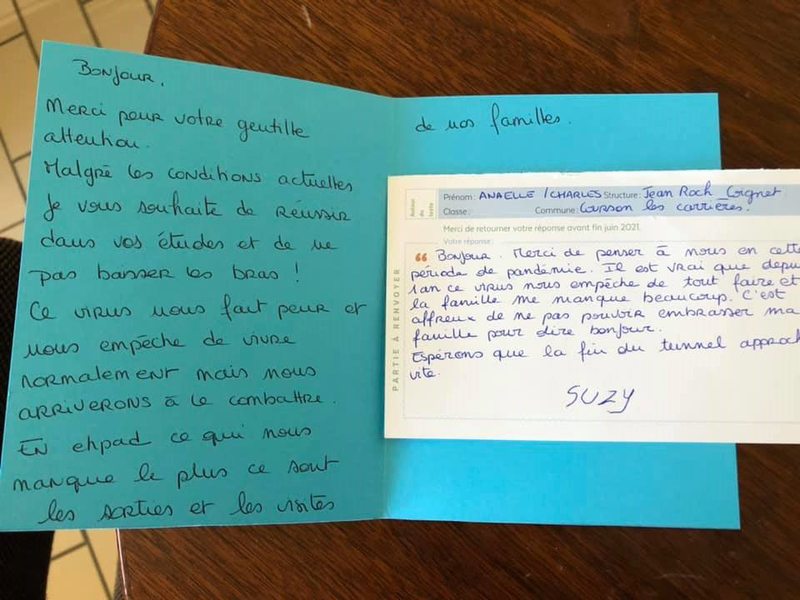 Bonjour,
Merci pour votre gentille
attention.
Malgré les conditions actuelles
je vous souhaite de réussir
dans vos études et de ne
pas baisser les bras !
Ce virus nous fait peur et
nous empêche de vivre
normalement mais nous
arriverons à le combattre.
En ehpad ce qui nous
manque le plus ce sont
les sorties et les visites
de nos familles.
Auteur du texte
Prénom : ANAELLE / CHARLES Structure : Jean Roch Coignet
Classe : Commune : Courson les carrières.
Merci de retourner votre réponse avant fin juin 2021.
Votre réponse :
PARTIE À RENVOYER
“ Bonjour. Merci de penser à nous en cette
période de pandémie. Il est vrai que depu
1an ce virus nous empêche de tout faire et
la famille me manque beaucoup. C'est
affreux de ne pas pouvoir embrasser ma
famille pour dire bonjour.
Espérons que la fin du tunnel approch
vite.
SUZY